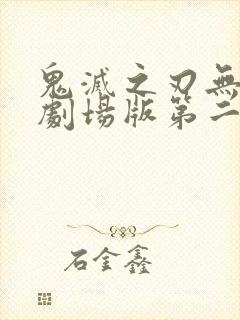 鬼滅之刃無
劇場版第二
石金鑫